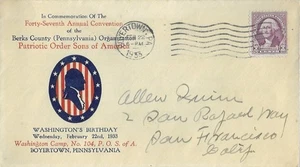 In Commemoration Of The
Forty-Seventh Annual Convention
of the
Berks County (Pennsylvania) Organization
Patriotic Order Sons of America
WASHINGTON'S BIRTHDAY
Wednesday, February 22nd, 1933
Washington Camp, No. 104, P. O. S. of A.
BOYERTOWN, PENNSYLVANIA
BOYERTOWN, PA
FEB 22
6-PM
1933
Allen Quinn
2 San Rafael Way
San Francisco
Calif